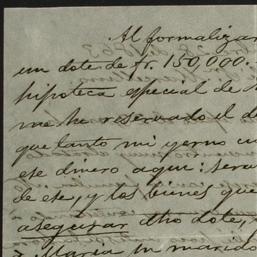 Al formalizar
un dote de fr. 150,000.
hipoteca especial de
me he reservado el d
que tanto mi yerno c
ese dinero aqui: sera
de ese, y los bienes que
asegurar dho dote,
Maria su marido